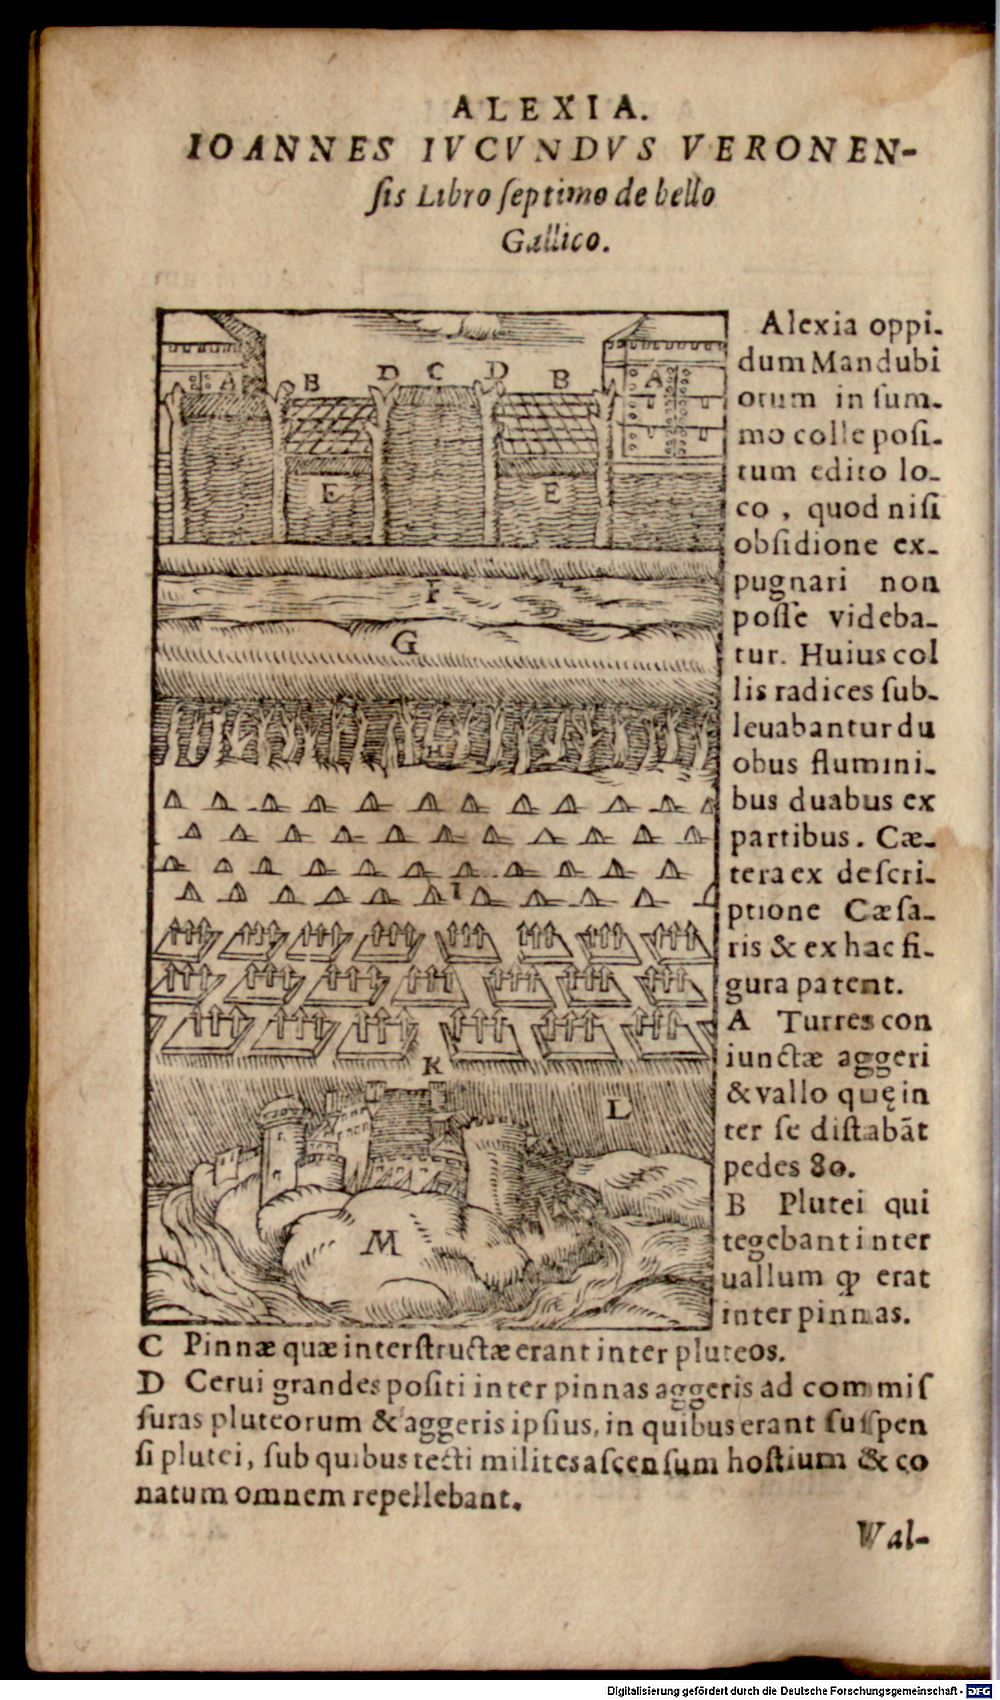 ALEXIA.
IOANNES IVCVNDVS VERONEN-
ſis Libro ſeptimo de bello
Gallico.
A B D C D B A
E E
F
G
H
I
K
L
M
Alexia oppi-
dum Mandubi
orum in ſum-
mo colle poſi-
tum edito lo-
co, quod niſi
obſidione ex-
pugnari non
poſſe videba-
tur. Huius col
lis radices ſub-
leuabantur du
obus flumini-
bus duabus ex
partibus. Cæ-
tera ex deſcri-
ptione Cæſa-
ris & ex hac fi-
gura patent.
A Turres con
iunctæ aggeri
& vallo quę in
ter ſe diſtabāt
pedes 80.
B Plutei qui
tegebant inter
uallum ꝙ erat
inter pinnas.
C Pinnæ quæ interſtructæ erant inter pluteos.
D Cerui grandes poſiti inter pinnas aggeris ad commiſ
ſuras pluteorum & aggeris ipſius, in quibus erant ſuſpen
ſi plutei, ſub quibus tecti milites aſcenſum hoſtium & co
natum omnem repellebant.
Wal-
Digitalisierung gefördert durch die Deutsche Forschungsgemeinschaft - DFG